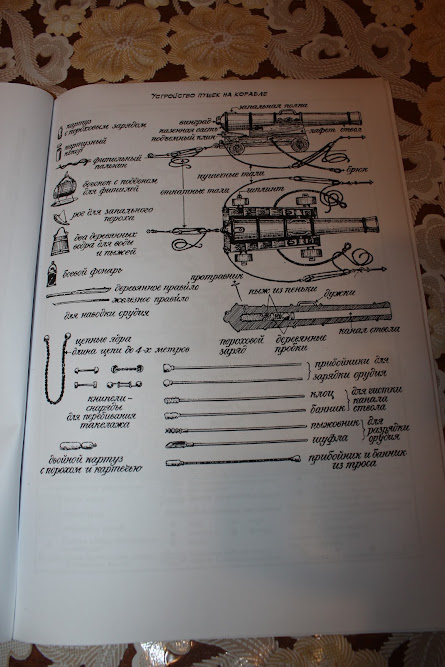 Устройство пушек на корабле
запальная полка
картуз
с пороховым зарядом
картузный
пенал
фитильный
пальник
виноград
казенная часть
подъемный клин
лафет ствол
пушечные тали
брюк
откатные тали
бочонок с поддоном
для фитилей
рог для запального
пороха
два деревянных
ведра для воды
и пыжей
боевой фонарь
деревянное правило
железное правило
для наводки орудия
протравник
пыж из пеньки
дужки
канал ствола
пороховой
заряд
деревянные
пробки
цепные ядра
длина цепи до 4-х метров
книпели-
снаряды
для перебивания
такелажа
двойной картуз
с порохом и картечью
прибойники для
зарядки орудия
клоц
банник
для чистки
канала
ствола
пыжовник
шуфла
для
разрядки
орудия
прибойник и банник
из троса